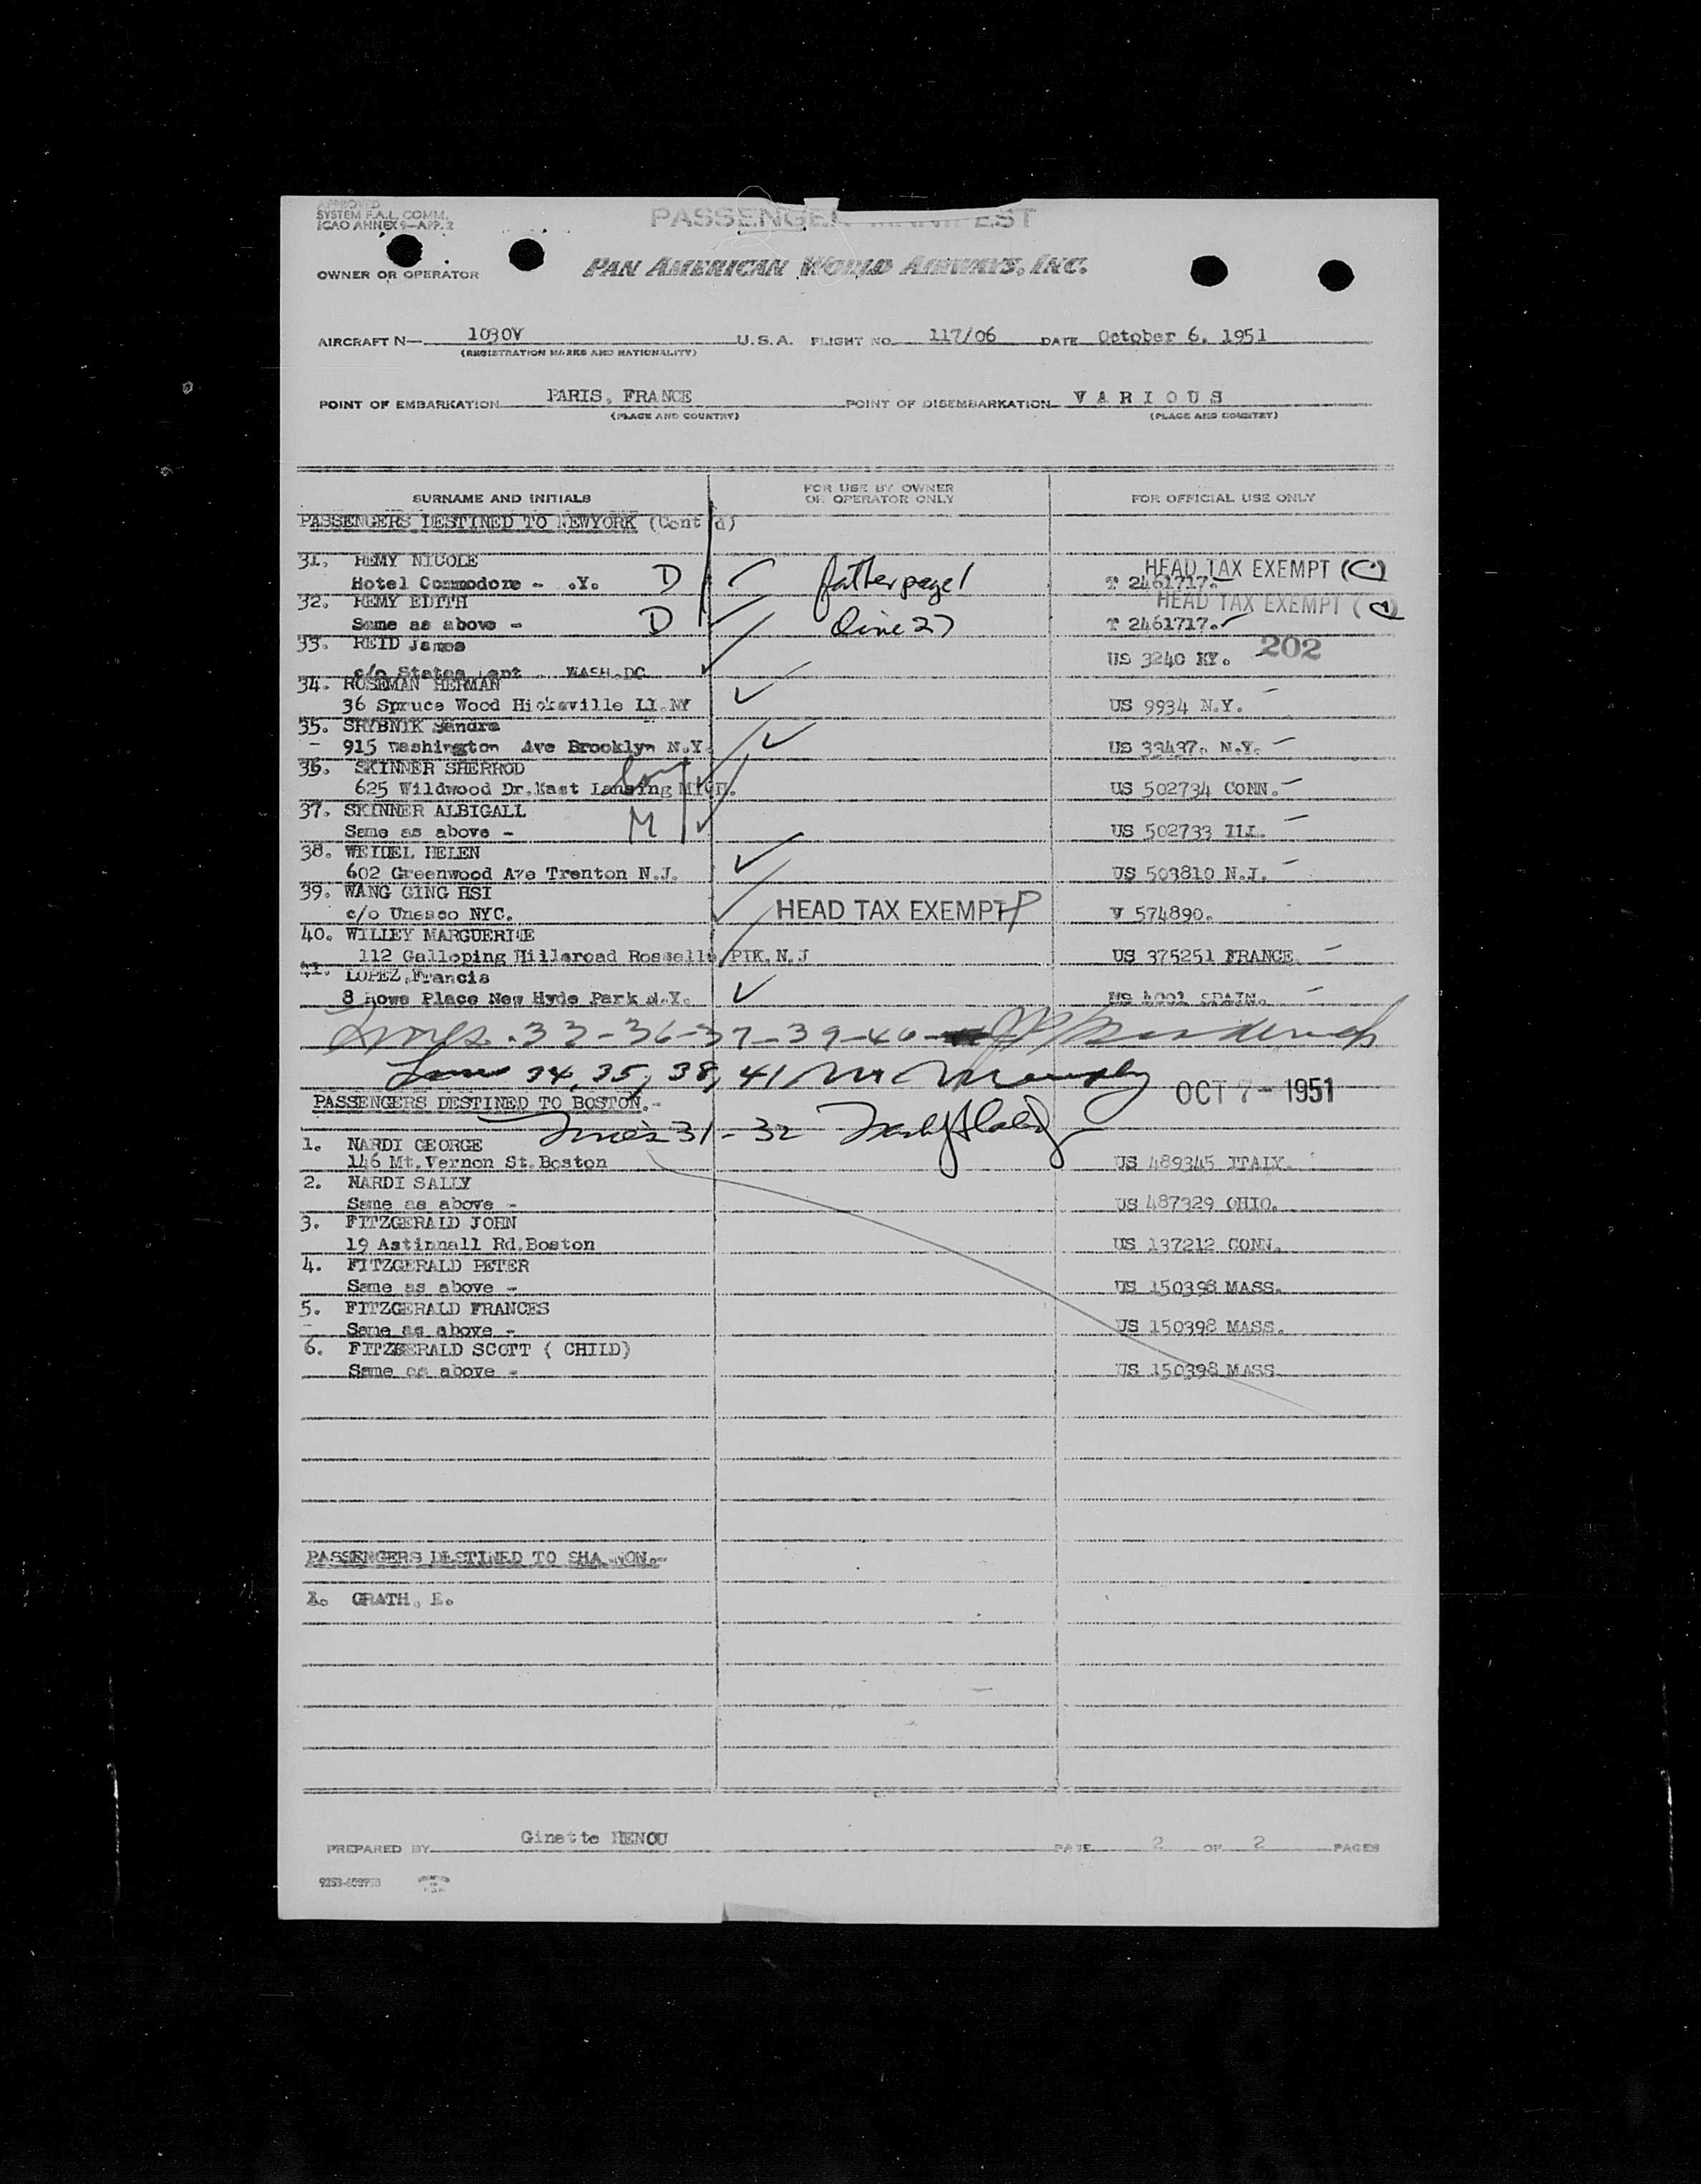 APPROVED
SYSTEM F.A.L. COMM.
ICAO ANNEX 9—APP. 2
PASSENGER MANIFEST
OWNER OR OPERATOR PAN AMERICAN WORLD AIRWAYS, INC.
AIRCRAFT N— 1030V U.S.A. FLIGHT NO. 117/06 DATE October 6, 1951
(REGISTRATION MARKS AND NATIONALITY)
POINT OF EMBARKATION PARIS, FRANCE POINT OF DISEMBARKATION V A R I O U S
(PLACE AND COUNTRY) (PLACE AND COUNTRY)
SURNAME AND INITIALS FOR USE BY OWNER OR OPERATOR ONLY FOR OFFICIAL USE ONLY
PASSENGERS DESTINED TO NEWYORK (Cont'd)
31. REMY NICOLE HEAD TAX EXEMPT (C)
Hotel Commodore - .Y. D father page 1 T 2461717.
32. REMY EDITH HEAD TAX EXEMPT (C)
Same as above - D line 27 T 2461717.
33. REID James 202
c/o States ent WASH.DC US 3240 NY.
34. ROSEMAN HERMAN
36 Spruce Wood Hicksville LI.NY US 9934 N.Y.
35. SRYBNIK Sandra
915 Washington Ave Brooklyn N.Y. US 33437. N.Y.
36. SKINNER SHERROD
625 Wildwood Dr.East Lansing MICH. US 502734 CONN.
37. SKINNER ALBIGALL
Same as above - M US 502733 ILL.
38. WEIDEL HELEN
602 Greenwood Ave Trenton N.J. US 503810 N.J.
39. WANG GING HSI
c/o Unesco NYC. HEAD TAX EXEMPT P V 574890.
40. WILLEY MARGUERITE
112 Galloping Hillsroad Rosselle PIK. N.J US 375251 FRANCE.
41. LOPEZ, Francis
8 Rowe Place New Hyde Park N.Y. US 4001 SPAIN.
Lines. 33-36-37-39-40
Lines 34, 35, 38, 41
OCT 7 - 1951
PASSENGERS DESTINED TO BOSTON.-
Lines 31-32
1. NARDI GEORGE
146 Mt. Vernon St. Boston US 489345 ITALY.
2. NARDI SALLY
Same as above - US 487329 OHIO.
3. FITZGERALD JOHN
19 Astinnall Rd. Boston US 137212 CONN.
4. FITZGERALD PETER
Same as above - US 150398 MASS.
5. FITZGERALD FRANCES
Same as above - US 150398 MASS.
6. FITZGERALD SCOTT ( CHILD)
Same as above - US 150398 MASS.
PASSENGERS DESTINED TO SHANNON.-
1. GRATH, E.
PREPARED BY Ginette HENOU PAGE 2 OF 2 PAGES